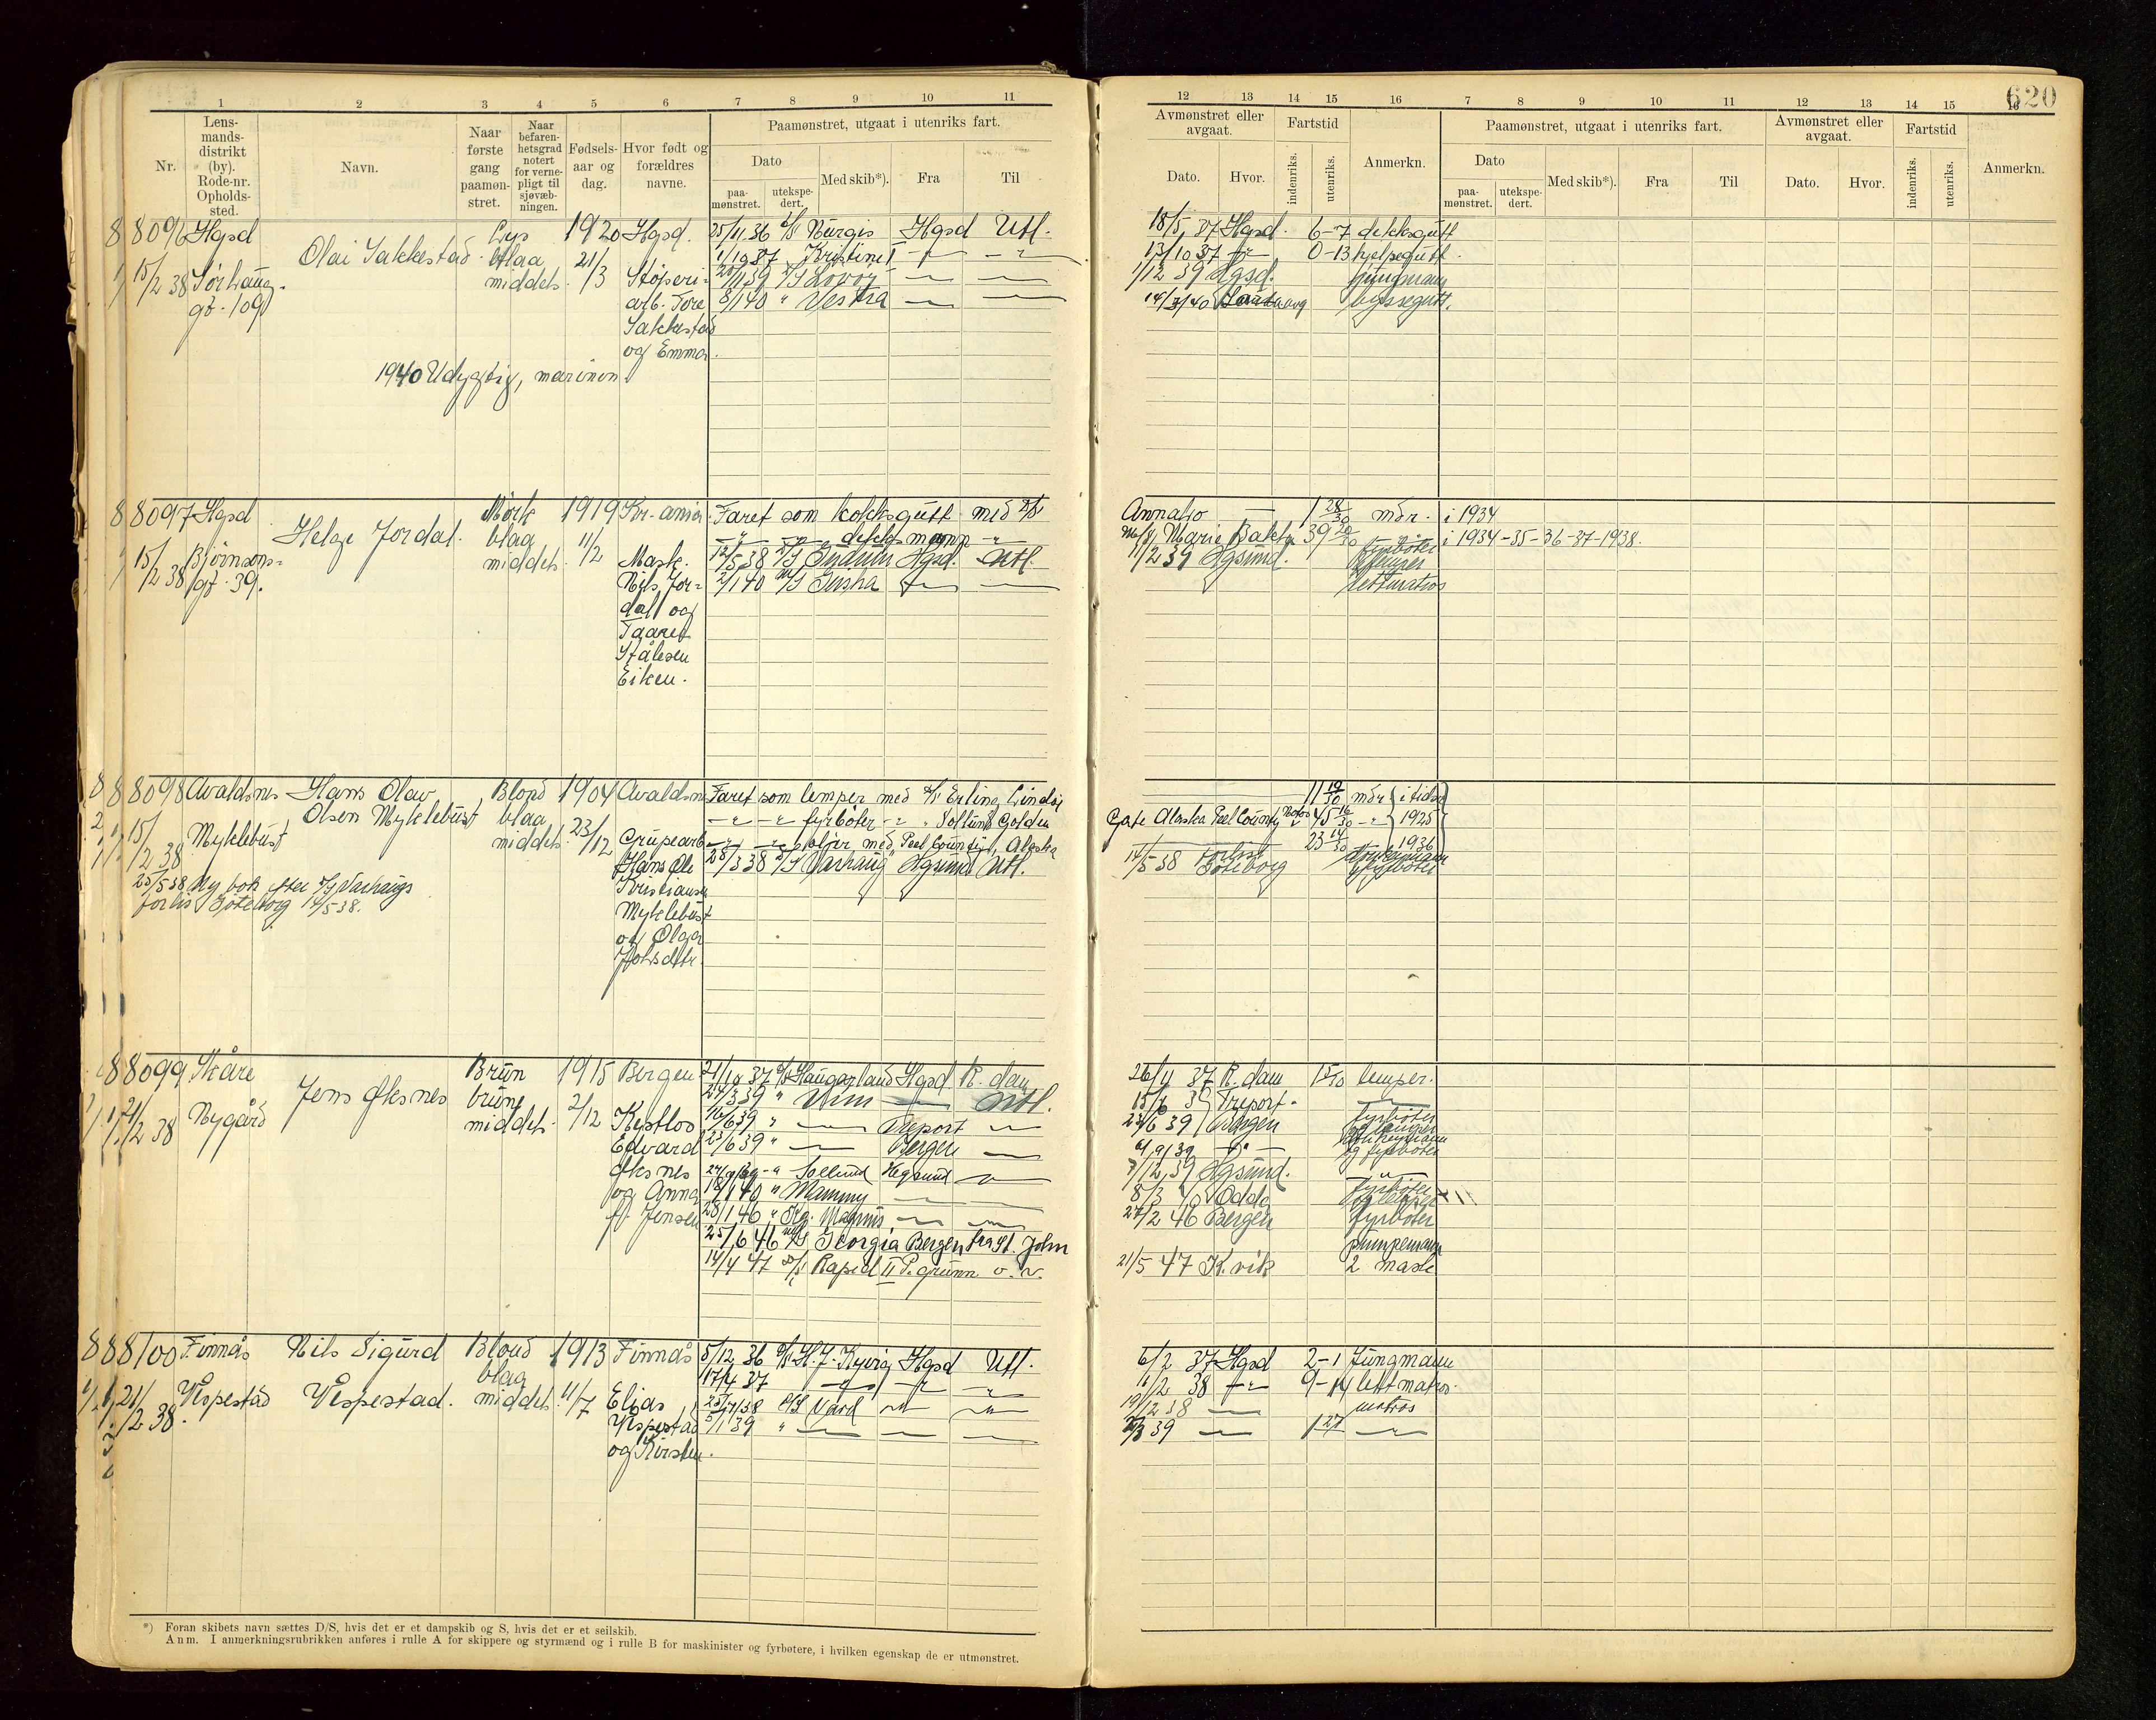 620
1 2 3 4 5 6 7 8 9 10 11
Nr.
Lens-
mands-
distrikt
(by).
Rode-nr.
Opholds-
sted.
Navn.
Naar
første
gang
paamøn-
stret.
Naar
befaren-
hetsgrad
notert
for verne-
pligt til
sjøvæb-
ningen.
Fødsels-
aar og
dag.
Hvor født og
forældres
navne.
Paamønstret, utgaat i utenriks fart.
Dato
paa-
mønstret.
utekspe-
dert.
Med skib*).
Fra
Til
12 13 14 15 16 7 8 9 10 11 12 13 14 15 16
Avmønstret eller
avgaat.
Dato.
Hvor.
Fartstid
indenriks.
utenriks.
Anmerkn.
Paamønstret, utgaat i utenriks fart.
Dato
paa-
mønstret.
utekspe-
dert.
Med skib*).
Fra
Til
Avmønstret eller
avgaat.
Dato.
Hvor.
Fartstid
indenriks.
utenriks.
Anmerkn.
8096 Hgsd
15/2 38 Sørhaug-
gt. 109
Olai Sakkestad
Lys
blaa
middels.
1920
21/3
Hgsd.
Støperi-
arb. Tore
Sakkestad
og Emma.
1940 Udygtig, marinen
25/11 36 Hgsd Utl.
Kristine I
8/1 40 " Vestra
18/5 37 Hgsd. 6-7 dekksgutt
13/10 37 0-13 hjelpegutt
1/12 39 Hgsd. jungmann
14/3 40 byssegutt.
8097 Hgsd
15/2 38 Bjørnsons-
gt. 39.
Helge Jordal.
Mørk
blaa
middels.
1919
11/2
Kr-ania.
Mask.
Nils Jor-
dal og
Taaret
Stålesen
Eiken.
Faret som kokksgutt med
dekksmann
12/5 38 Hgsd. Utl.
2/1 40 M/S
Annabo 1 28/30 mdr. i 1934
Marie Bakke 39 20/30 i 1934-35-36-37-1938.
11/2 39 Hgsund. fyrbøter
lettmatros
8098 Avaldsnes
15/2 38 Myklebust
Hans Olav
Olsen Myklebust
Blond
blaa
middels.
1904
23/12
Avaldsnes
Grubearb.
Hans Ole
Kristiansen
Myklebust
og Olga
Johsdtr.
25/5 38 Ny bok etter D/S Varhaugs
forlis Göteborg 14/5 38.
Faret som lemper med D/S Erling Lindø
fyrbøter Golden
oljer med Peel County, Alaska
28/3 38 D/S Varhaug Hgsund Utl.
11 19/30 mdr i tiden
Gate Alaska Peel County 45 16/30 1925
23 14/30 1936
14/5 38 Forlist
Göteborg
fyrbøter
8099 Skåre
21/2 38 Nygård
Jens Aksnes
Brun
brune
middels.
1915
2/12
Bergen
Kystlos
Edvard
Aksnes
og Anna
f. Jensen
21/10 37 D/S Haugarland Hgsd R.dam
24/3 39 " Utl.
16/6 39 " Treport
23/6 39 " Bergen
Hgsund
18/1 40 " Mammy
28/1 46 " Kg. Magnus
25/6 46 M/S Georgia Bergen fra St. John
14/4 47 D/S Rapid II P.grunn o.v.
26/11 37 R.dam lemper.
Treport.
23/6 39 Bergen
7/12 39 Hgsund.
8/3 40 Odda
27/2 46 Bergen fyrbøter
pumpemann
21/5 47 K.vik 2 mask
8100 Finnås
21/2 38. Vespestad
Nils Sigurd
Vespestad.
Blond
blaa
middels.
1913
11/7
Finnås
Elias
Vespestad
og Kirsten.
5/12 36 D/S H.J. Kyvig Hgsd Utl.
17/4 37
25/4 38 D/S Vard
5/1 39 "
6/2 37 Hgsd 2-1 Jungmann
1/2 38 9-14 lettmatros.
19/12 38 matros
3/3 39 1 27
*) Foran skibets navn sættes D/S, hvis det er et dampskib og S, hvis det er et seilskib.
Anm. I anmerkningsrubrikken anføres i rulle A for skippere og styrmænd og i rulle B for maskinister og fyrbøtere, i hvilken egenskap de er utmønstret.